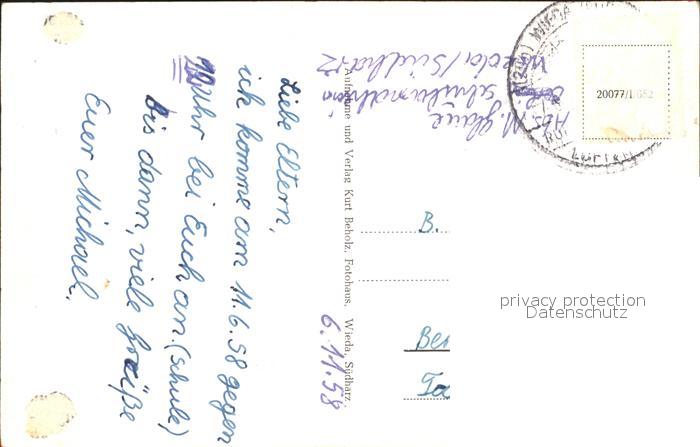 Liebe Eltern,
ich komme am 11.6.58 gegen
Uhr bei Euch an. (Schule)
Bis dann, viele Grüße
Euer Michael.
6.11.58
Abs. M.
Wieda/Südharz
Aufnahme und Verlag Kurt Beholz, Fotohaus, Wieda, Südharz.
20077/1652
WIEDA
B.
Ber
Ta
privacy protection
Datenschutz